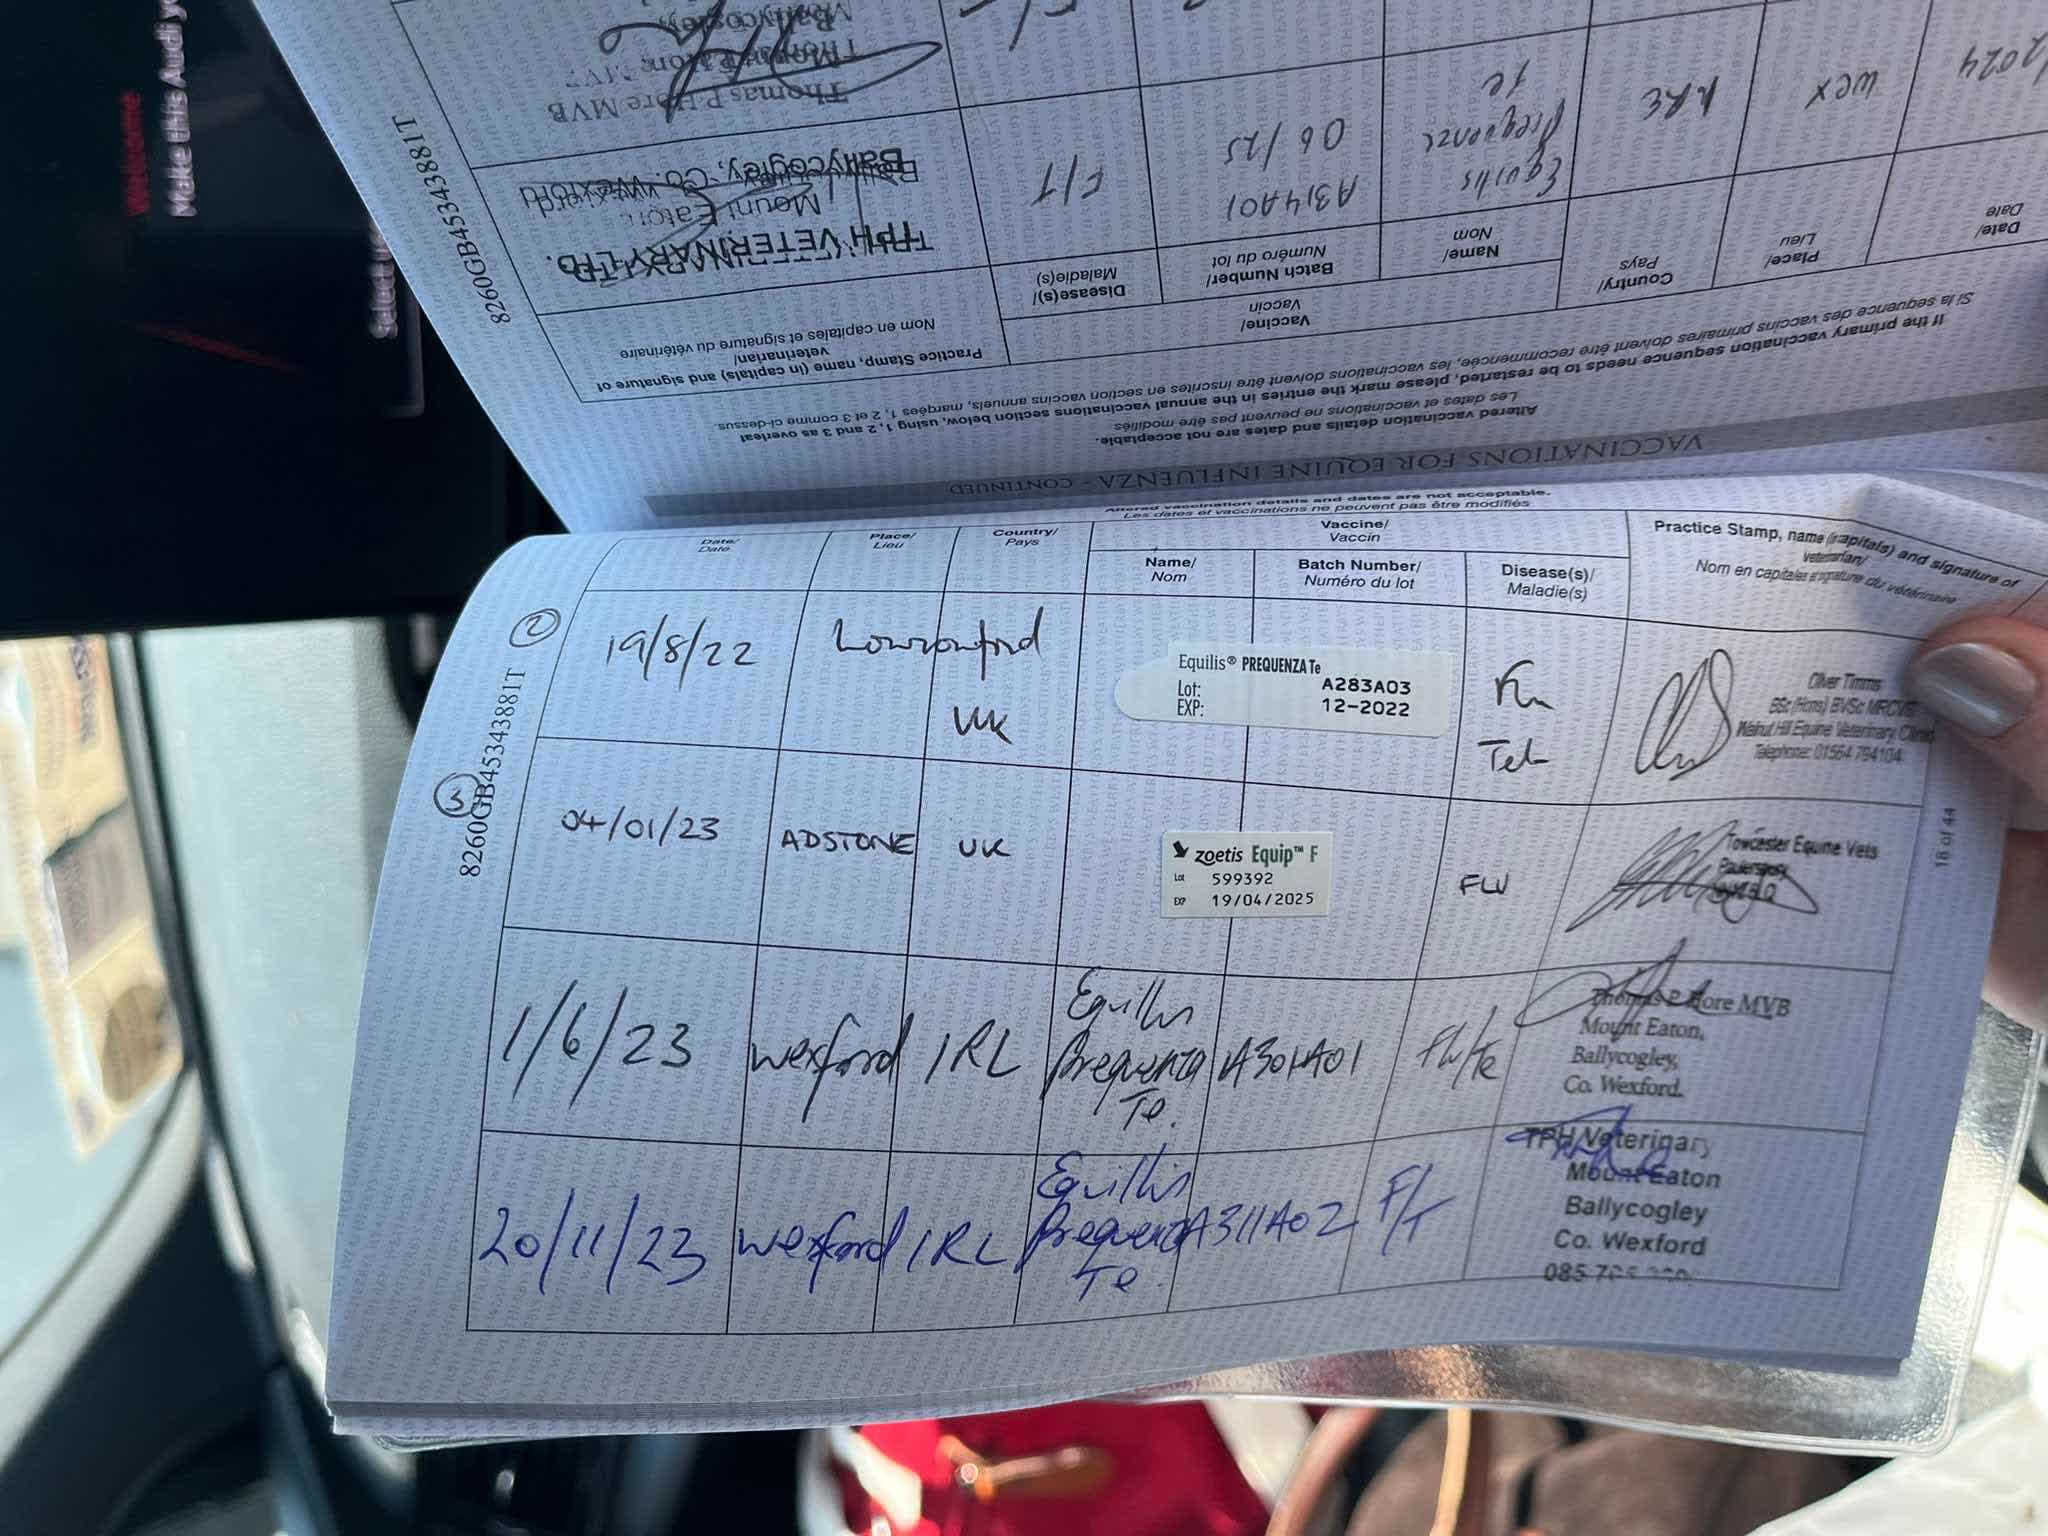 Welcome
Make this Audi yo
8260GB45343881T
VACCINATIONS FOR EQUINE INFLUENZA - CONTINUED
Altered vaccination details and dates are not acceptable.
Les dates et vaccinations ne peuvent pas être modifiés
If the primary vaccination sequence needs to be restarted, please mark the entries in the annual vaccinations section below, using 1, 2 and 3 as overleaf
Si la sequence des vaccins primaires doivent être recommencée, les vaccinations doivent être inscrites en section vaccins annuels, marqées 1, 2 et 3 comme ci-dessus.
Date/
Date
Place/
Lieu
Country/
Pays
Vaccine/
Vaccin
Name/
Nom
Batch Number/
Numéro du lot
Disease(s)/
Maladie(s)
Practice Stamp, name (in capitals) and signature of
veterinarian/
Nom en capitales et signature du vétérinaire
Equilis
Prequenza
Te
A314A01
06/25
F/T
TPH VETERINARY LTD.
Mount Eaton,
Ballycogley, Co. Wexford
/2024
Wex
Thomas P. Hore MVB
Mount Eaton,
Ballycogley,
Altered vaccination details and dates are not acceptable.
Les dates et vaccinations ne peuvent pas être modifiés
Date/
Date
Place/
Lieu
Country/
Pays
Vaccine/
Vaccin
Name/
Nom
Batch Number/
Numéro du lot
Disease(s)/
Maladie(s)
Practice Stamp, name (in capitals) and signature of
veterinarian/
Nom en capitales et signature du vétérinaire
2
19/8/22
Lowsonford
UK
Equilis® PREQUENZA Te
Lot: A283A03
EXP: 12-2022
Flu
Tet
Oliver Timms
BSc (Hons) BVSc MRCVS
Walnut Hill Equine Veterinary Clinic
Telephone: 01564 794104
3
8260GB45343881T
04/01/23
ADSTONE
UK
zoetis Equip™ F
Lot 599392
EXP 19/04/2025
FLU
Towcester Equine Vets
18 of 44
1/6/23
Wexford
IRL
Equillis
Prequenza
Te.
A301A01
Flu/Te
Thomas P. Hore MVB
Mount Eaton,
Ballycogley,
Co. Wexford.
20/11/23
Wexford
IRL
Equillis
Prequenza
Te.
A311A02
F/T
TPH Veterinary
Mount Eaton
Ballycogley
Co. Wexford
085